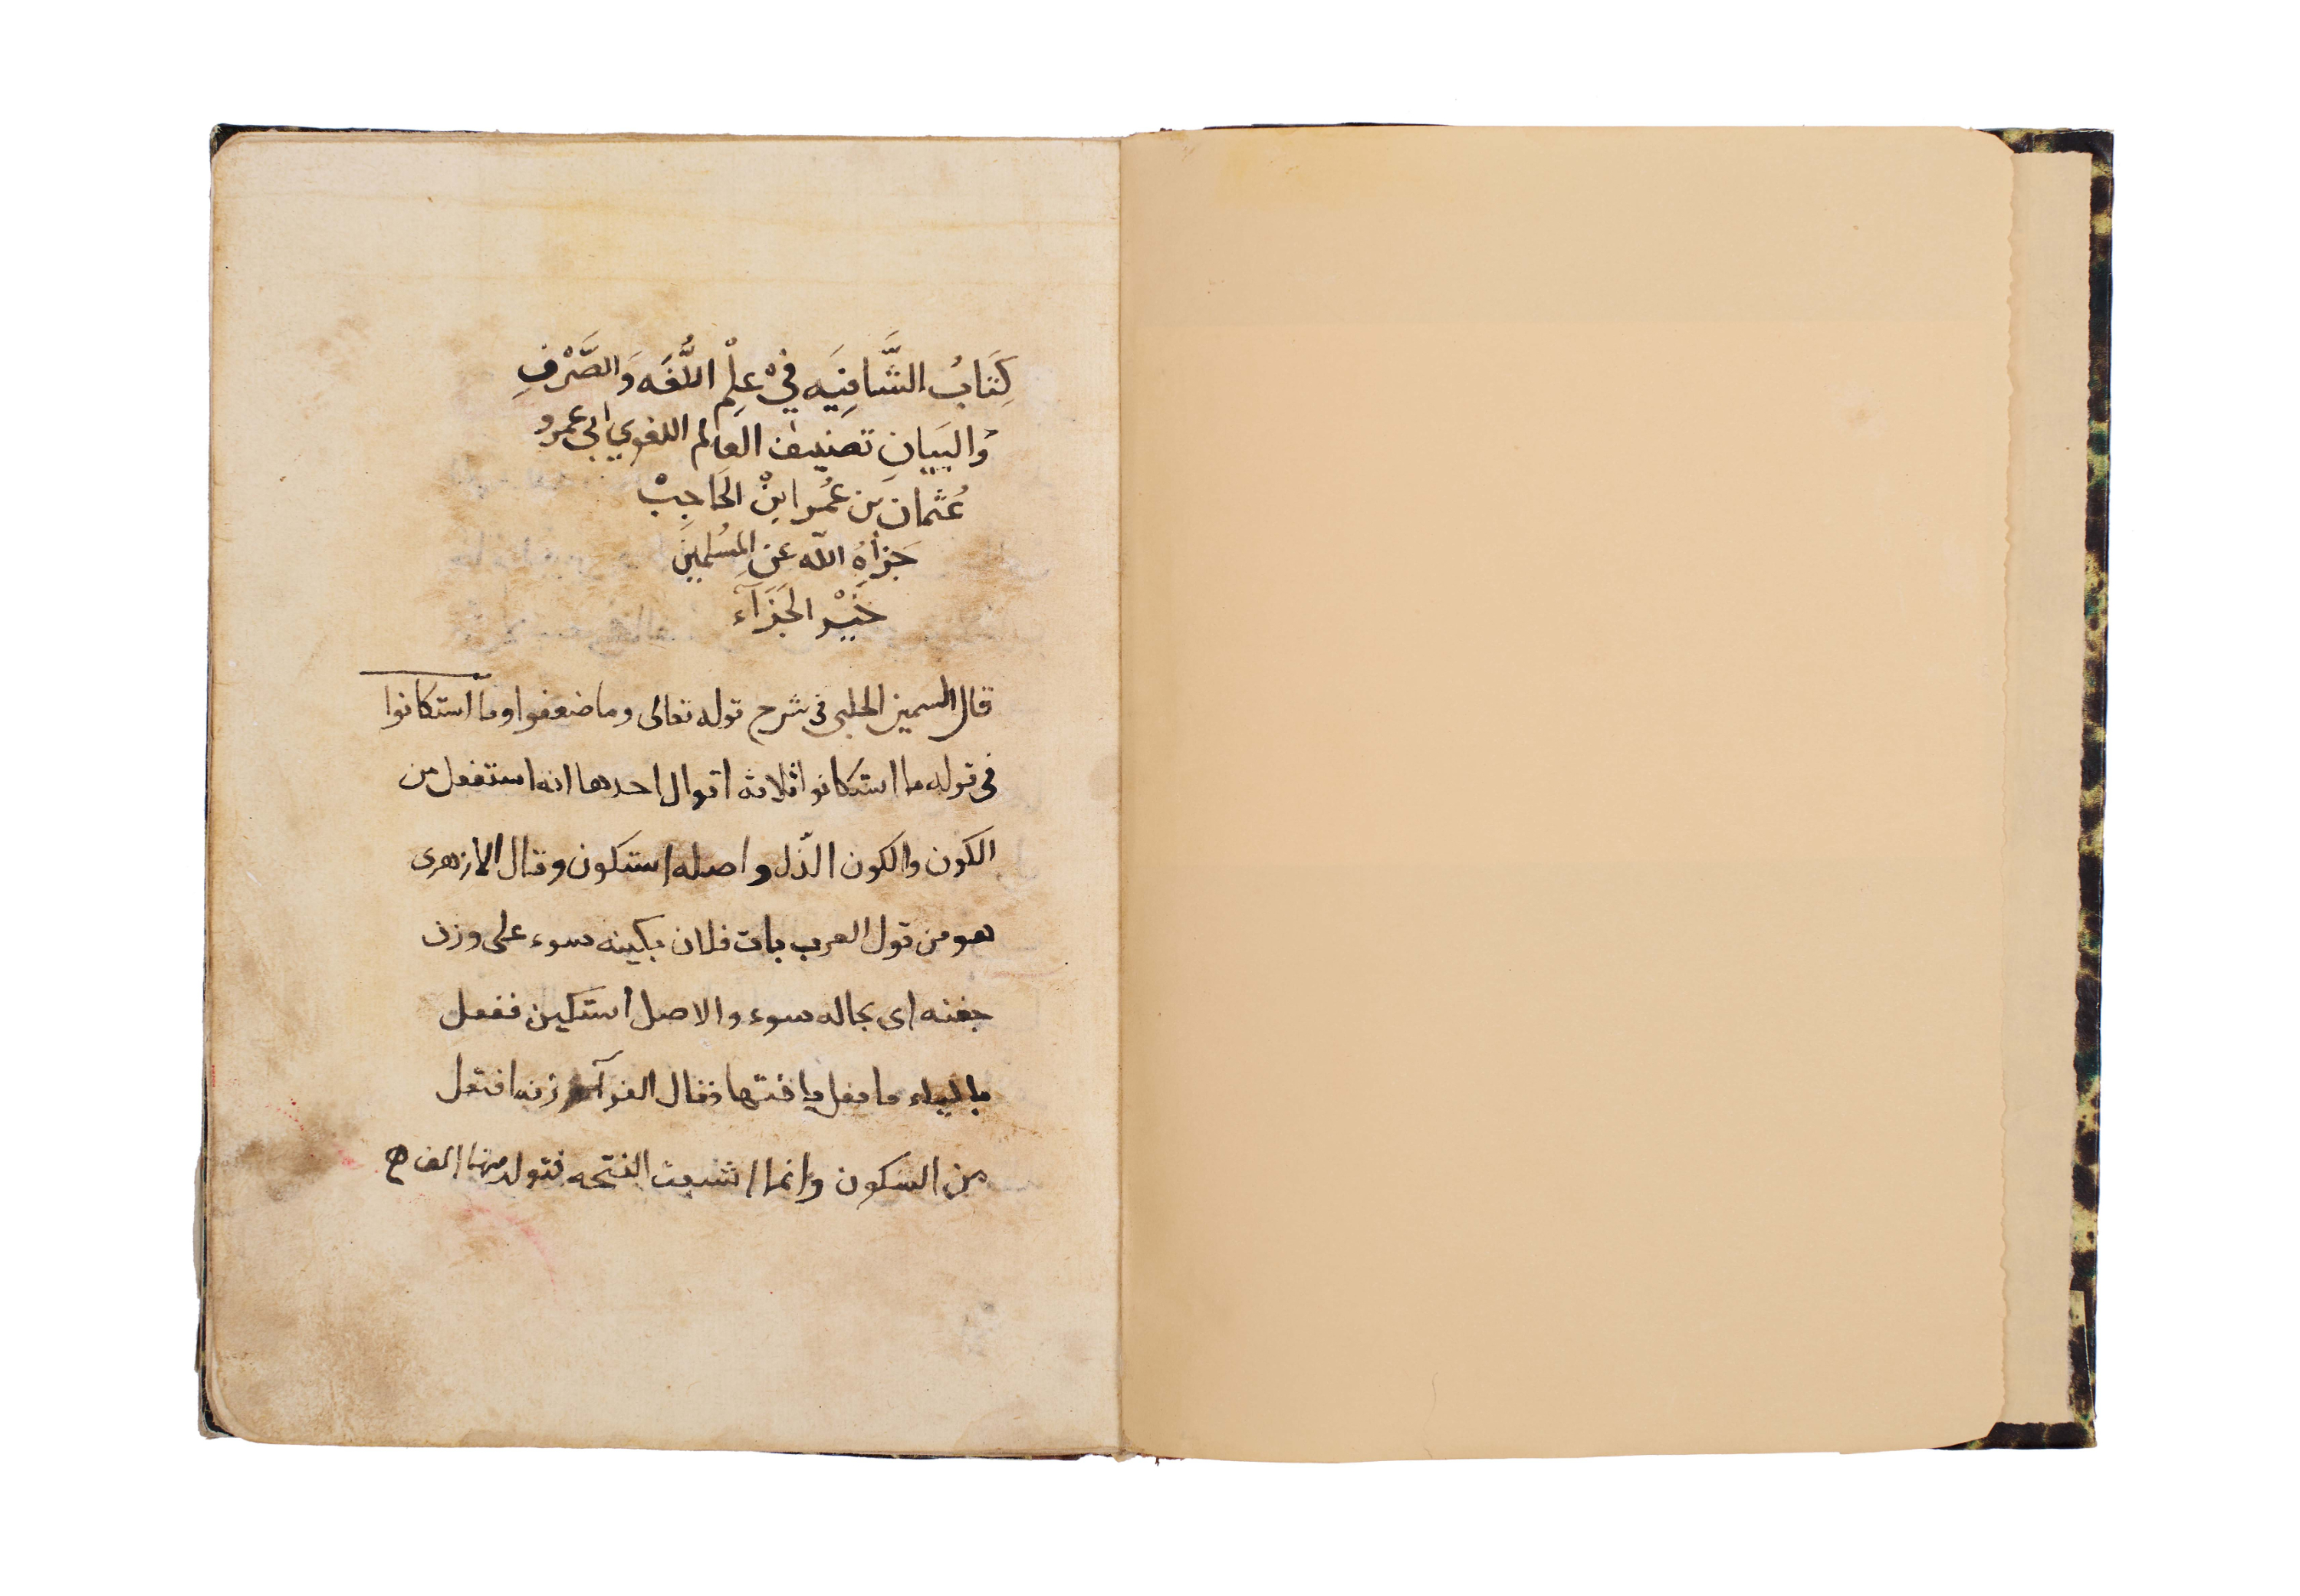 كِتَابُ الشَّافِيَه فيْ عِلْمِ اللُّغَه وَالصَّرْفِ
وَالبَيَانِ تصنيف العالم اللغوي ابى عمرو
عُثمان بن عُمر ابنْ الحَاجِبْ
جَزاهُ الله عَنِ المُسْلمينَ
خَيْر الجَزَآء
قال السمين الحلبى فى شرح قوله تعالى وما ضعفوا وما استكانوا
فى قوله ما استكانوا ثلاثه اقوال احدها انه استفعل من
الكون والكون الذل واصله استكون وقال الازهرى
هو من قول العرب بات فلان بكينه سوء على وزن
جفنه اى بحاله سوء والاصل استكين ففعل
بالياء ما فعل باختها وقال الفرآء وزنه افتعل
من السكون وانما اشبعت الفتحه فتولد منها الف